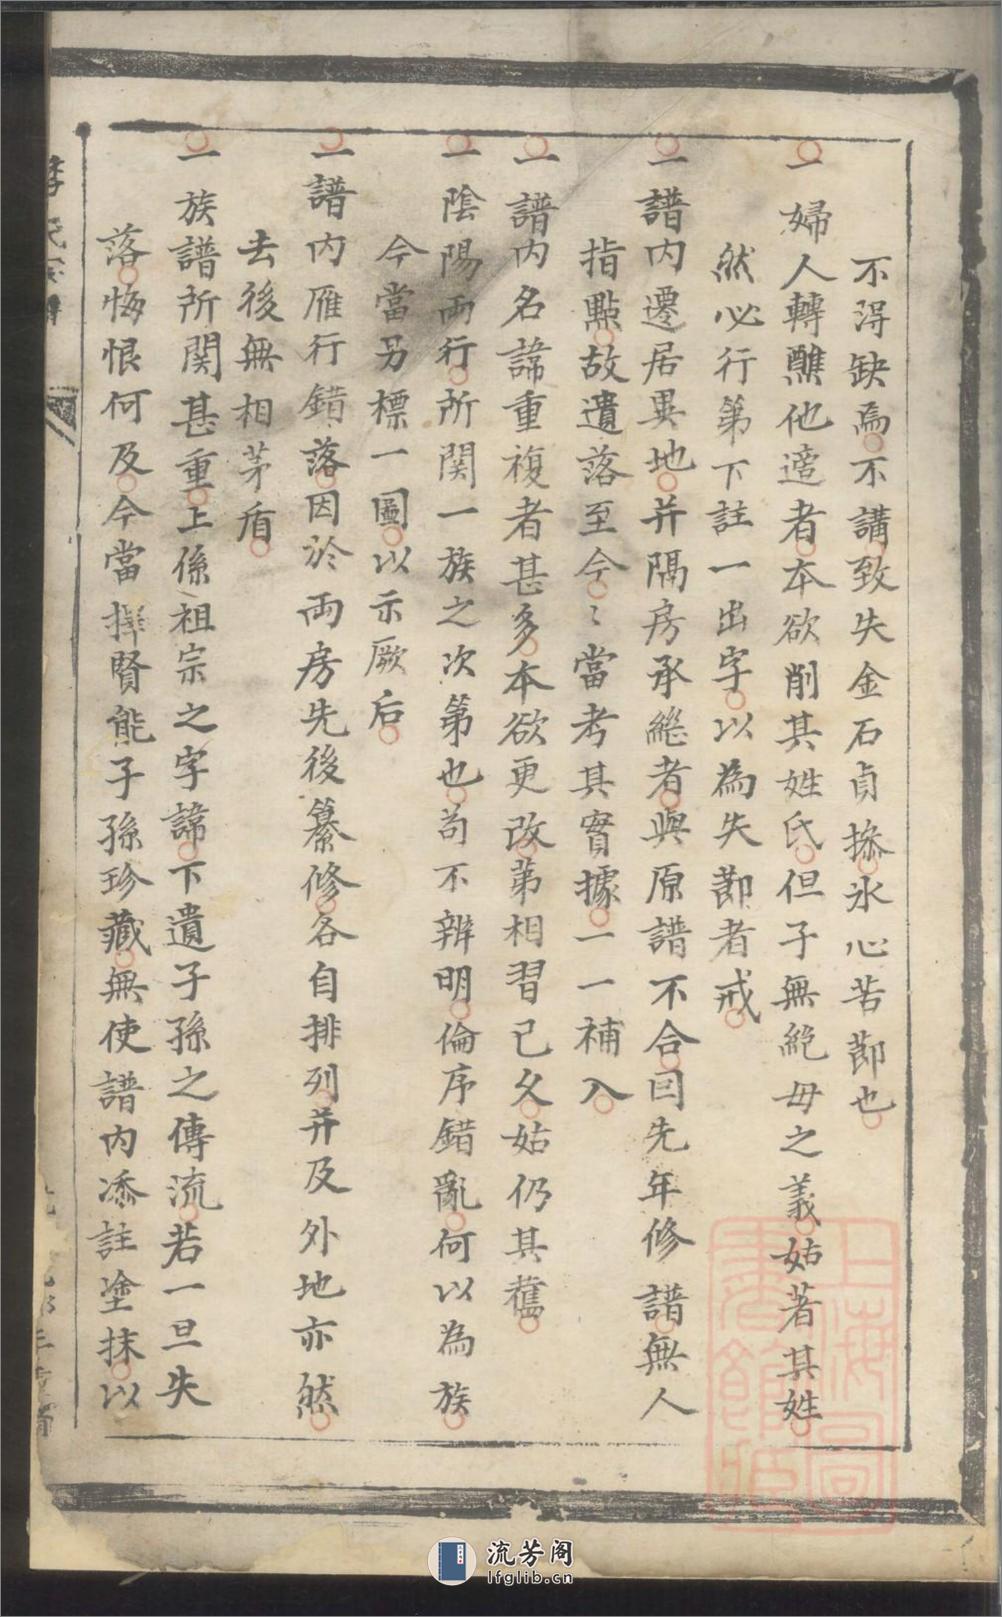 不得缺焉不講致失金石貞操氷心苦節也
一婦人轉醮他適者本欲削其姓氏但子無絶毋之義姑著其姓
然必行第下註一出字以為失節者戒
一譜内遷居異地并隔房承継者與原譜不合囙先年修譜無人
指點故遺落至今〻當考其實據一一補入
一譜内名諱重複者甚多本欲更改苐相習已久姑仍其舊
一陰陽両行所関一族之次第也苟不辨明倫序錯亂何以為族
今當另標一圖以示厥后
一譜内雁行錯落因於両房先後纂修各自排列并及外地亦然
去後無相茅盾
一族譜所関甚重上係祖宗之字諱下遺子孫之傳流若一旦失
落悔恨何及今當擇賢能子孫珍藏無使譜内添註塗抹以
上海圖書館藏
流芳阁
lfglib.cn